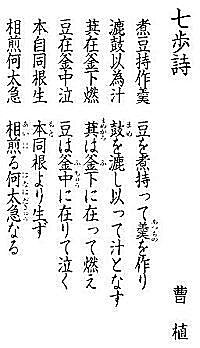 七歩詩
曹植
煮豆持作羹
漉鼓以為汁
萁在釜下燃
豆在釜中泣
本自同根生
相煎何太急
豆を煮持って羹を作り
鼓を漉し以って汁となす
萁は釜下に在って燃え
豆は釜中に在りて泣く
本同根より生ず
相煎る何太急なる